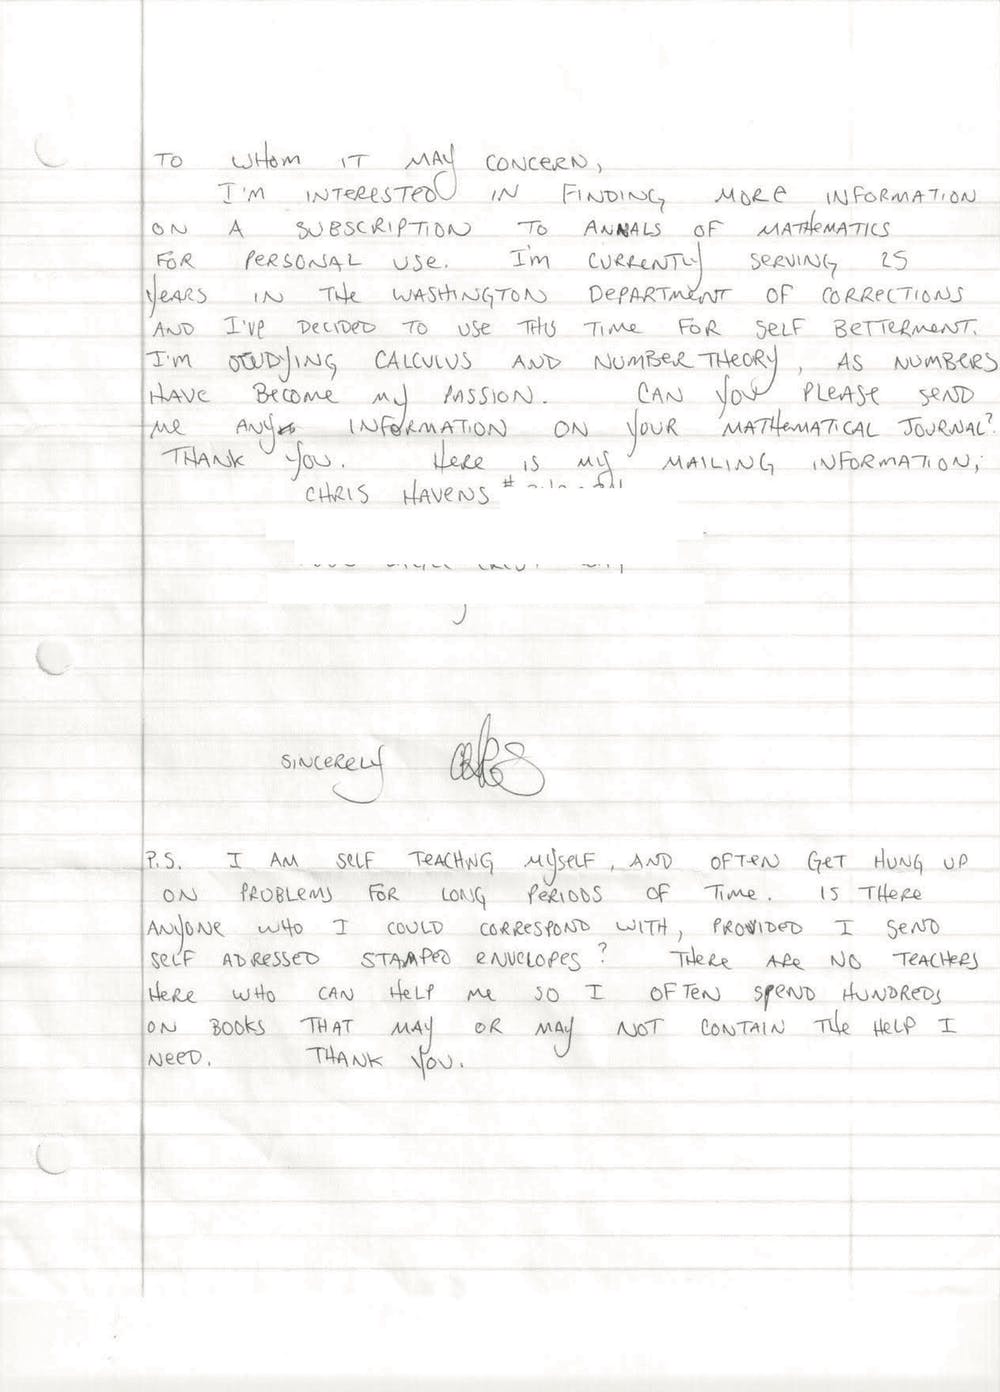 TO WHOM IT MAY CONCERN,
I'M INTERESTED IN FINDING MORE INFORMATION
ON A SUBSCRIPTION TO ANNALS OF MATHEMATICS
FOR PERSONAL USE. I'M CURRENTLY SERVING 25
YEARS IN THE WASHINGTON DEPARTMENT OF CORRECTIONS
AND I'VE DECIDED TO USE THIS TIME FOR SELF BETTERMENT.
I'M STUDYING CALCULUS AND NUMBER THEORY, AS NUMBERS
HAVE BECOME MY PASSION. CAN YOU PLEASE SEND
ME ANY INFORMATION ON YOUR MATHEMATICAL JOURNAL?
THANK YOU. HERE IS MY MAILING INFORMATION;
CHRIS HAVENS #
SINCERELY
P.S. I AM SELF TEACHNG MYSELF, AND OFTEN GET HUNG UP
ON PROBLEMS FOR LONG PERIODS OF TIME. IS THERE
ANYONE WHO I COULD CORRESPOND WITH, PROVIDED I SEND
SELF ADRESSED STAMPED ENVELOPES? THERE ARE NO TEACHERS
HERE WHO CAN HELP ME SO I OFTEN SPEND HUNDREDS
ON BOOKS THAT MAY OR MAY NOT CONTAIN THE HELP I
NEED. THANK YOU.